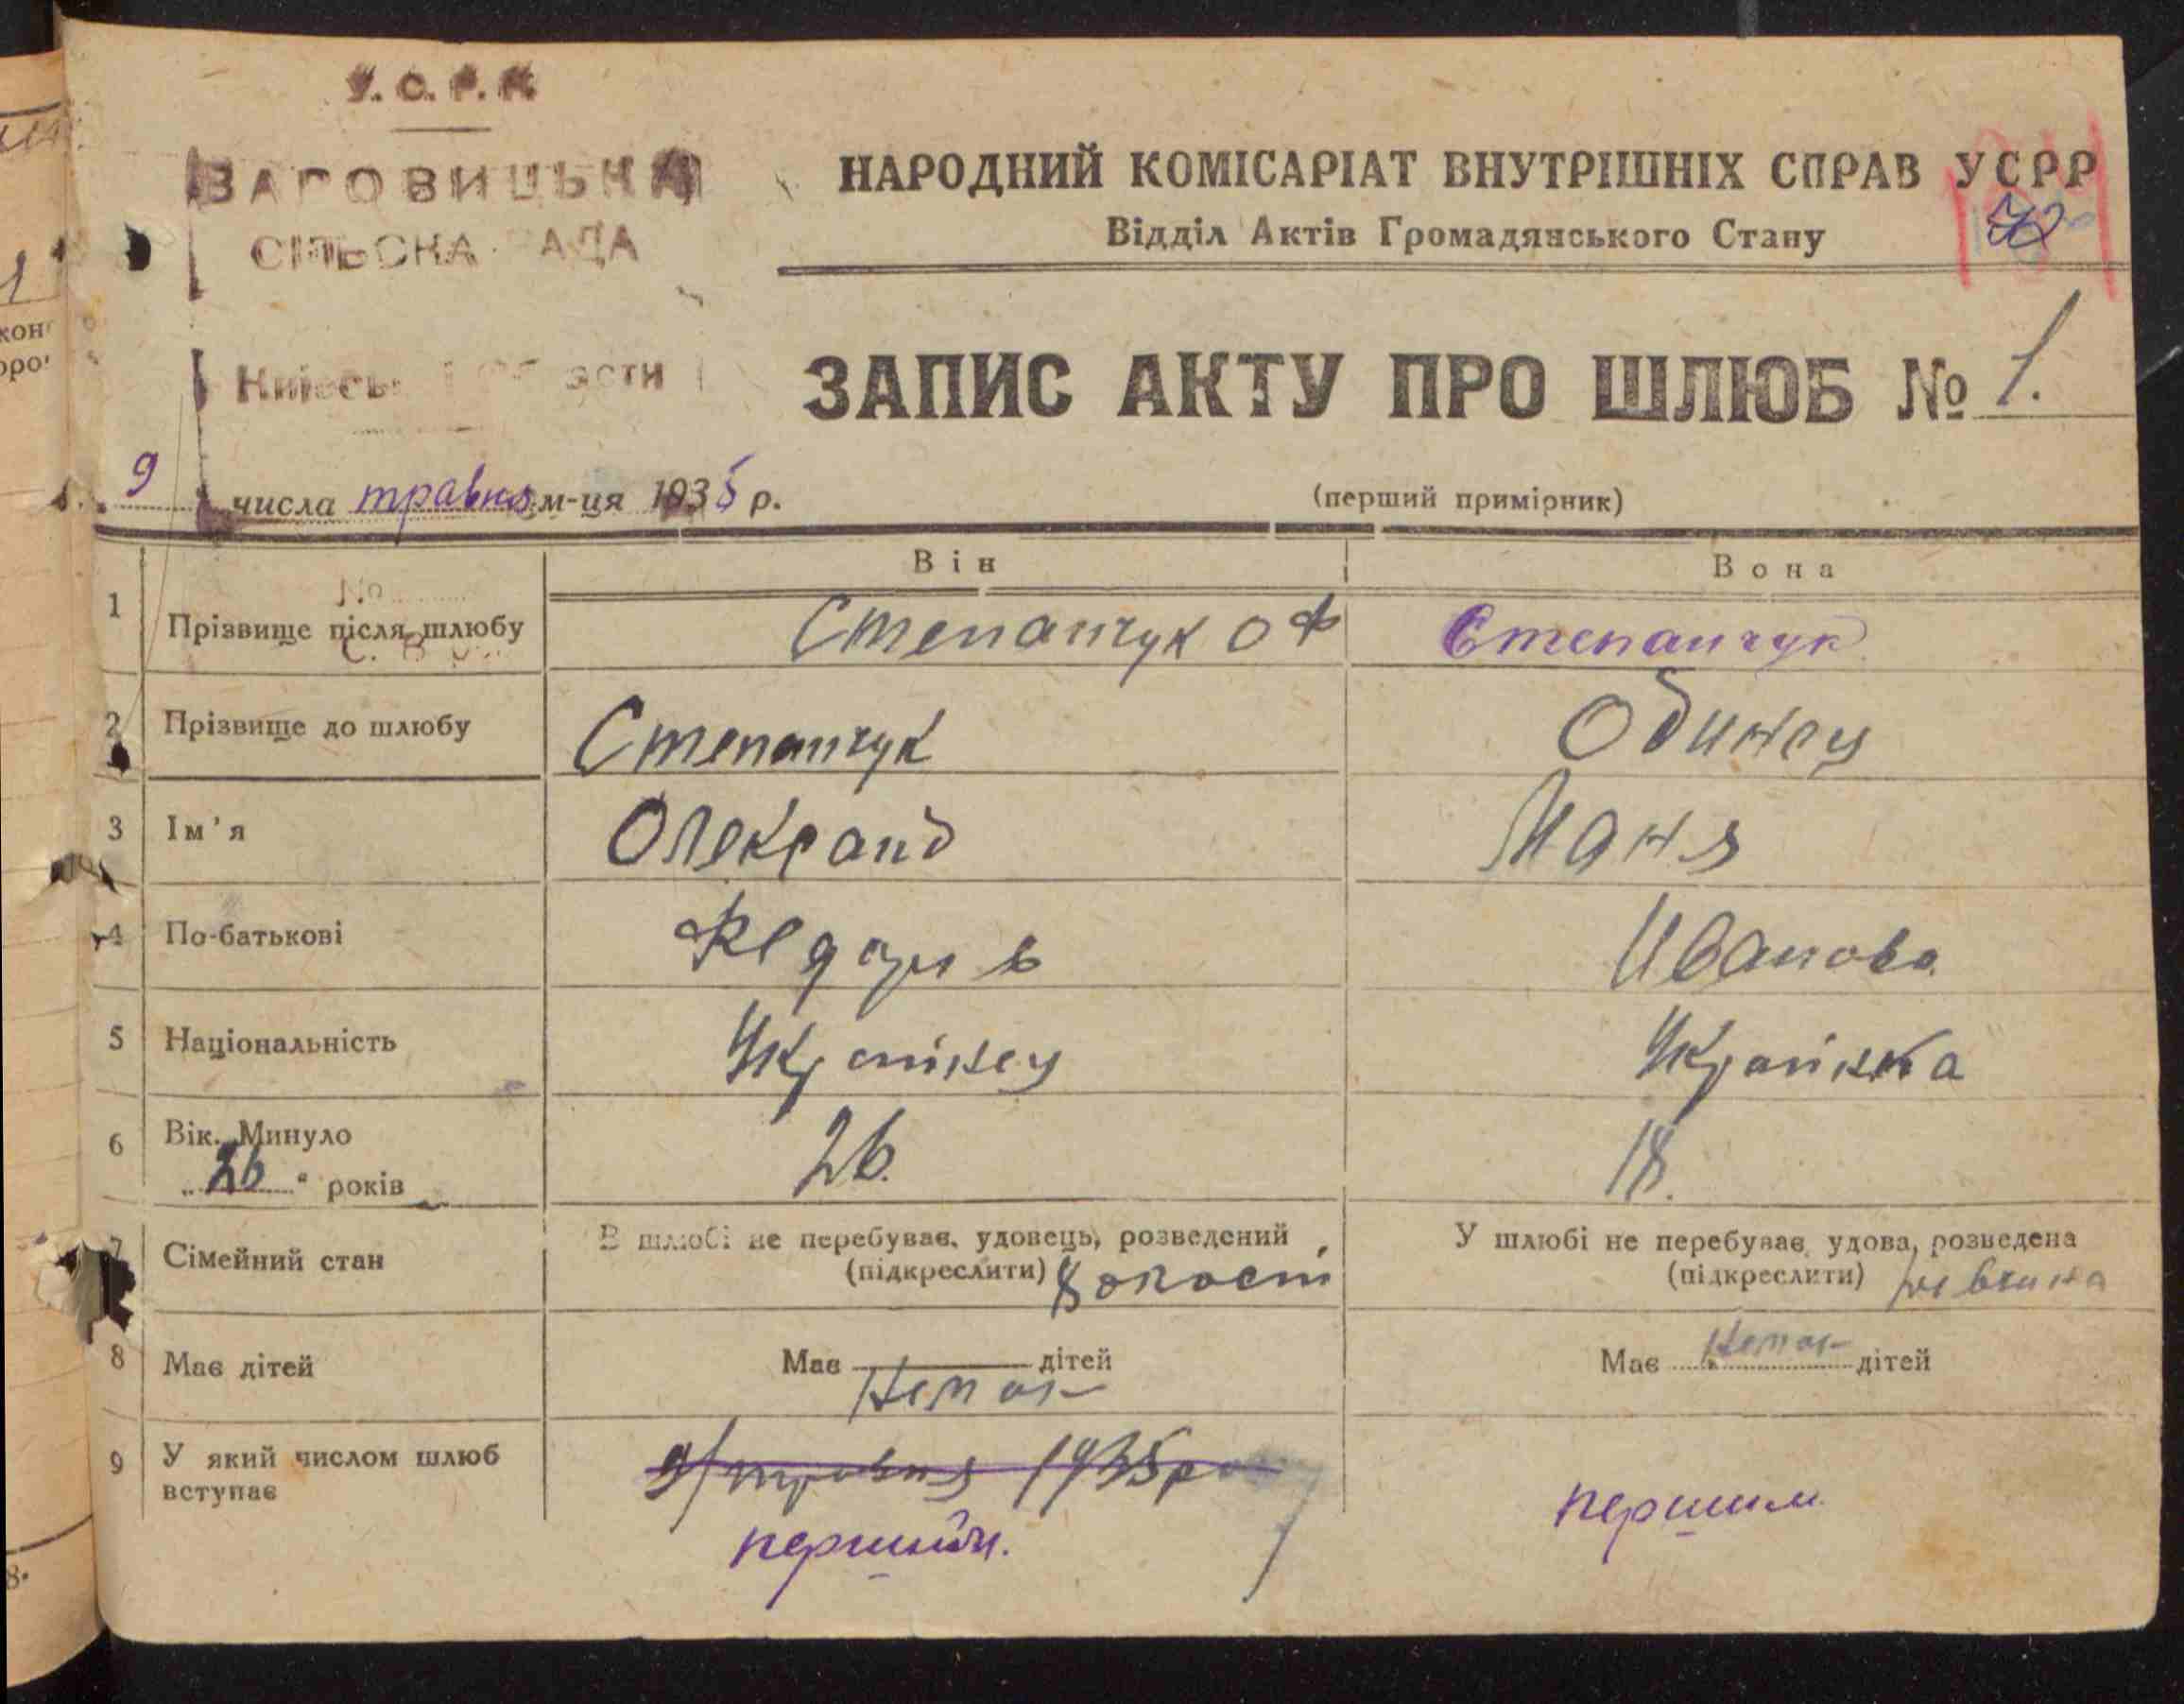 У.С.Р.Р.
СІЛЬСЬКА РАДА
НАРОДНИЙ КОМІСАРІАТ ВНУТРІШНІХ СПРАВ УСРР
Відділ Актів Громадянського Стану
ЗАПИС АКТУ ПРО ШЛЮБ № 1.
9 числа травня м-ця 1935 р.
(перший примірник)
Він
Вона
1 Прізвище після шлюбу
Степанчук О Ф
Степанчук
2 Прізвище до шлюбу
Степанчук
Одинец
3 Ім'я
Олександ
Маня
4 По-батькові
Иванова
5 Національність
Украінец
Украінка
6 Вік. Минуло
„26“ років
26.
18.
7 Сімейний стан
В шлюбі не перебував, удовець, розведений
(підкреслити)
У шлюбі не перебував, удова, розведена
(підкреслити) девчина
8 Має дітей
Має дітей
Немає
Має Немає дітей
9 У який числом шлюб
вступає
9/травня 1935р
першим.
першим.